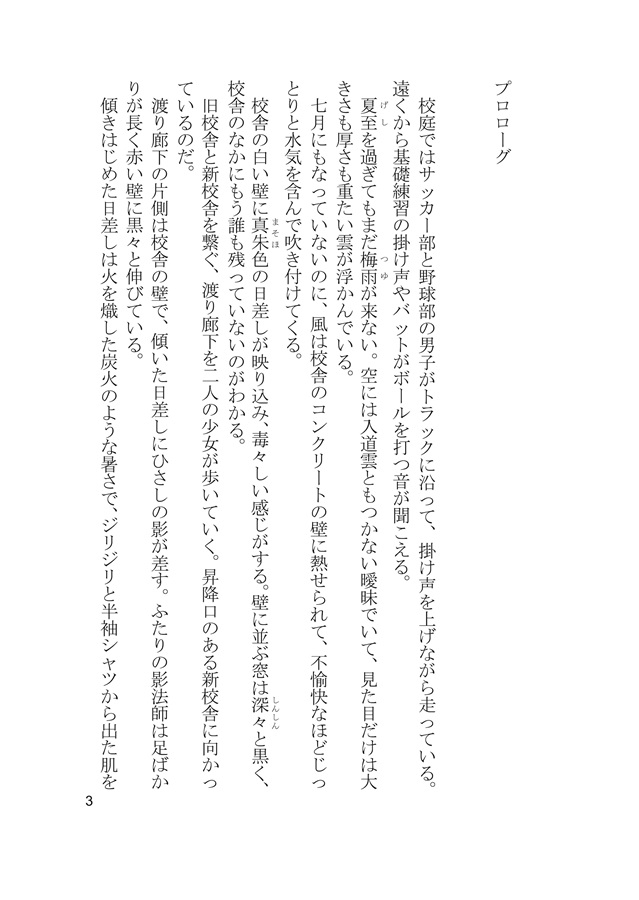 プロローグ
校庭ではサッカー部と野球部の男子がトラックに沿って、掛け声を上げながら走っている。
遠くから基礎練習の掛け声やバットがボールを打つ音が聞こえる。
夏至を過ぎてもまだ梅雨が来ない。空には入道雲ともつかない曖昧でいて、見た目だけは大
げし
つゆ
きさも厚さも重たい雲が浮かんでいる。
七月にもなっていないのに、風は校舎のコンクリートの壁に熱せられて、不愉快なほどじっ
とりと水気を含んで吹き付けてくる。
校舎の白い壁に真朱色の日差しが映り込み、毒々しい感じがする。壁に並ぶ窓は深々と黒く、
まそほ
しんしん
校舎のなかにもう誰も残っていないのがわかる。
旧校舎と新校舎を繋ぐ、渡り廊下を二人の少女が歩いていく。昇降口のある新校舎に向かっ
ているのだ。
渡り廊下の片側は校舎の壁で、傾いた日差しにひさしの影が差す。ふたりの影法師は足ばか
りが長く赤い壁に黒々と伸びている。
傾きはじめた日差しは火を熾した炭火のような暑さで、ジリジリと半袖シャツから出た肌を
3